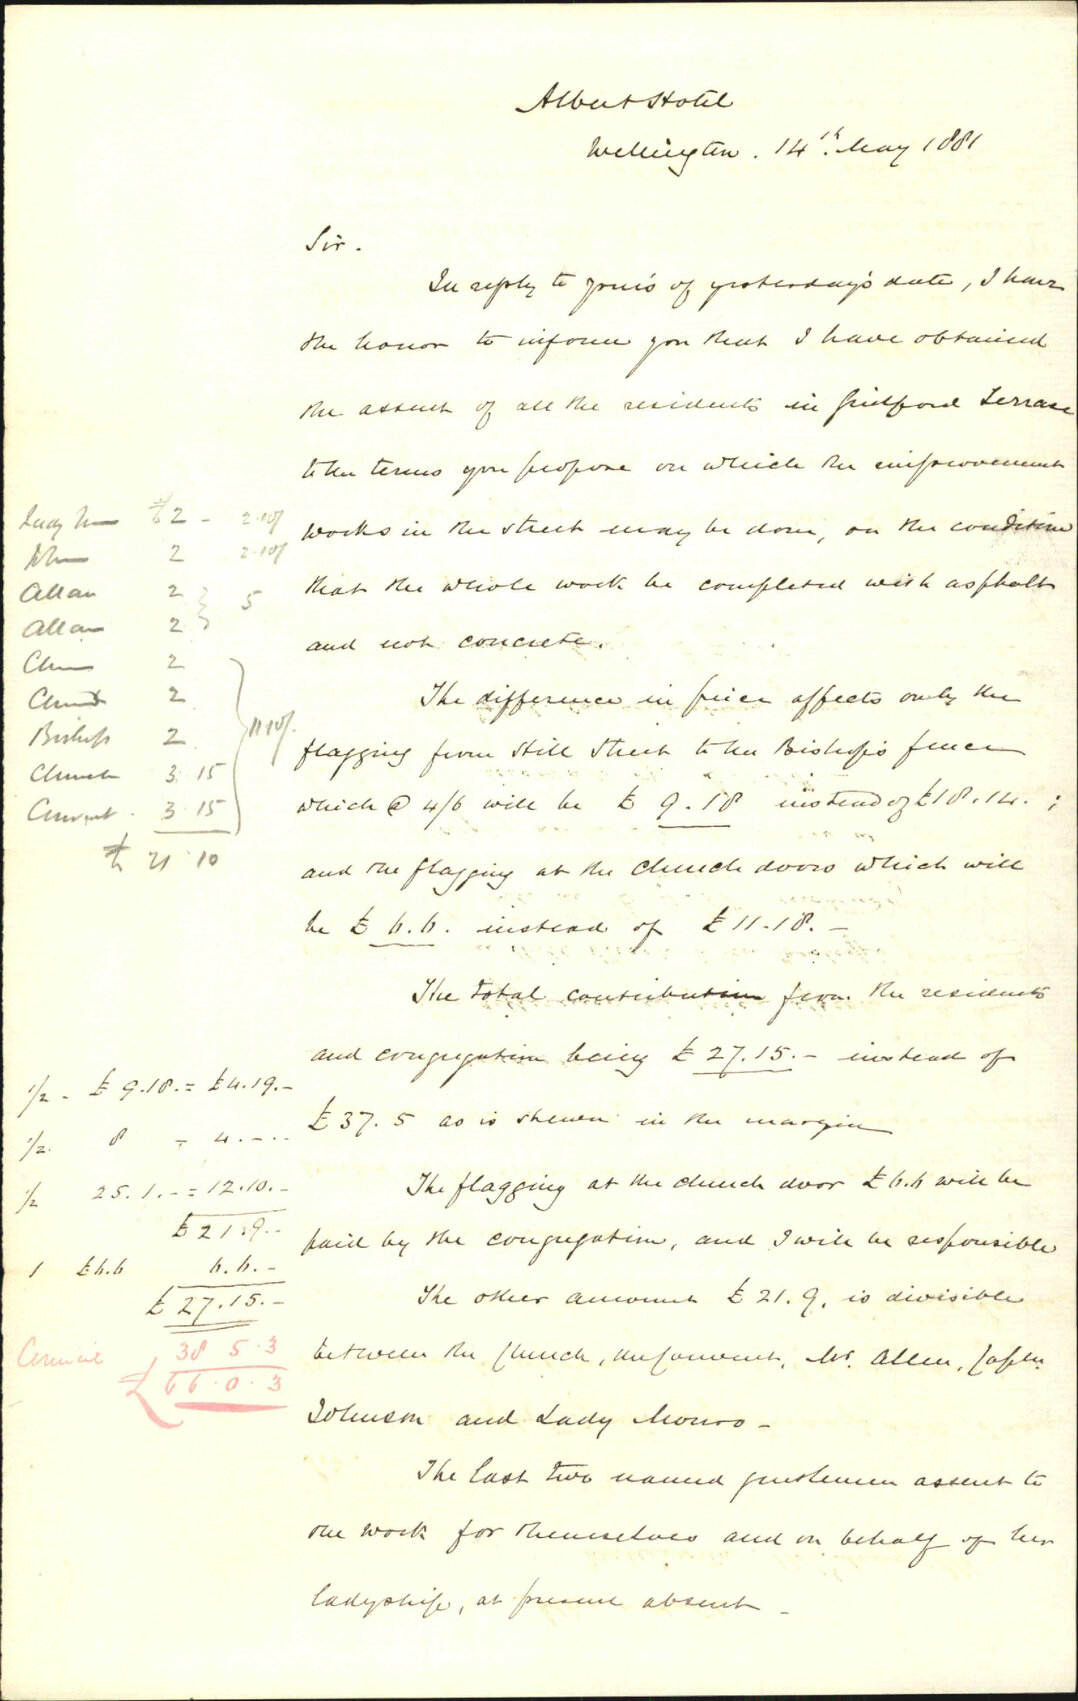 Albert Hotel
Wellington. 14th May 1881
Sir.
In reply to your's of yesterday's date, I have
the honor to inform you that I have obtained
the assent of all the residents in Guilford Terrace
to the terms you propose on which the improvement
works in the street may be done, on the condition
that the whole work be completed with asphalt
and not concrete.
The difference in price affects only the
flagging from Hill Street to the Bishop's fence
which @ 4/6 will be £ 9.18 instead of £18.14. ;
and the flagging at the church doors which will
be £ 6.6. instead of £11.18. -
The total contribution from the residents
and congregation being £ 27.15. - instead of
£37. 5 as is shewn in the margin
The flagging at the church door £6.6 will be
paid by the congregation, and I will be responsible
The other amount £21.9. is divisible
between the Church, the Convent, Mr. Allen, Captn.
Johnson and Lady Monro -
The last two named gentlemen assent to
the work for themselves and on behalf of her
ladyship, at present absent -
Lady M £2 - 2.10/
2 2.10/
Allan 2
Allan 2 5
Chu 2
Church 2
Bishop 2 11 10/.
Church 3. 15
Convent. 3 15
£ 21 10
1/2 - £ 9.18. = £4.19. -
1/2. 8 = 4. - . .
1/2 25. 1. - = 12.10. -
£21.9. -
1 £6.6 6.6. -
£ 27.15. -
Council 38 5.3
£66.0.3